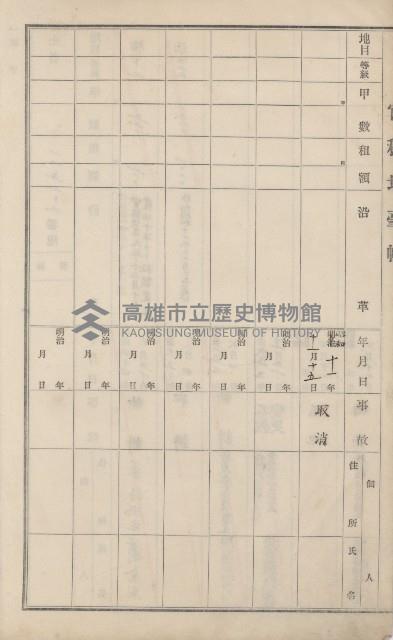 官租地臺帳
地目
等級
甲數
租額
沿革
年月日
事故
佃人
住所
氏名
昭和
明治十一年
十一月十五日
取消
明治 年
月 日
明治 年
月 日
明治 年
月 日
明治 年
月 日
明治 年
月 日
明治 年
月 日
高雄市立歷史博物館
KAOHSIUNG MUSEUM OF HISTORY